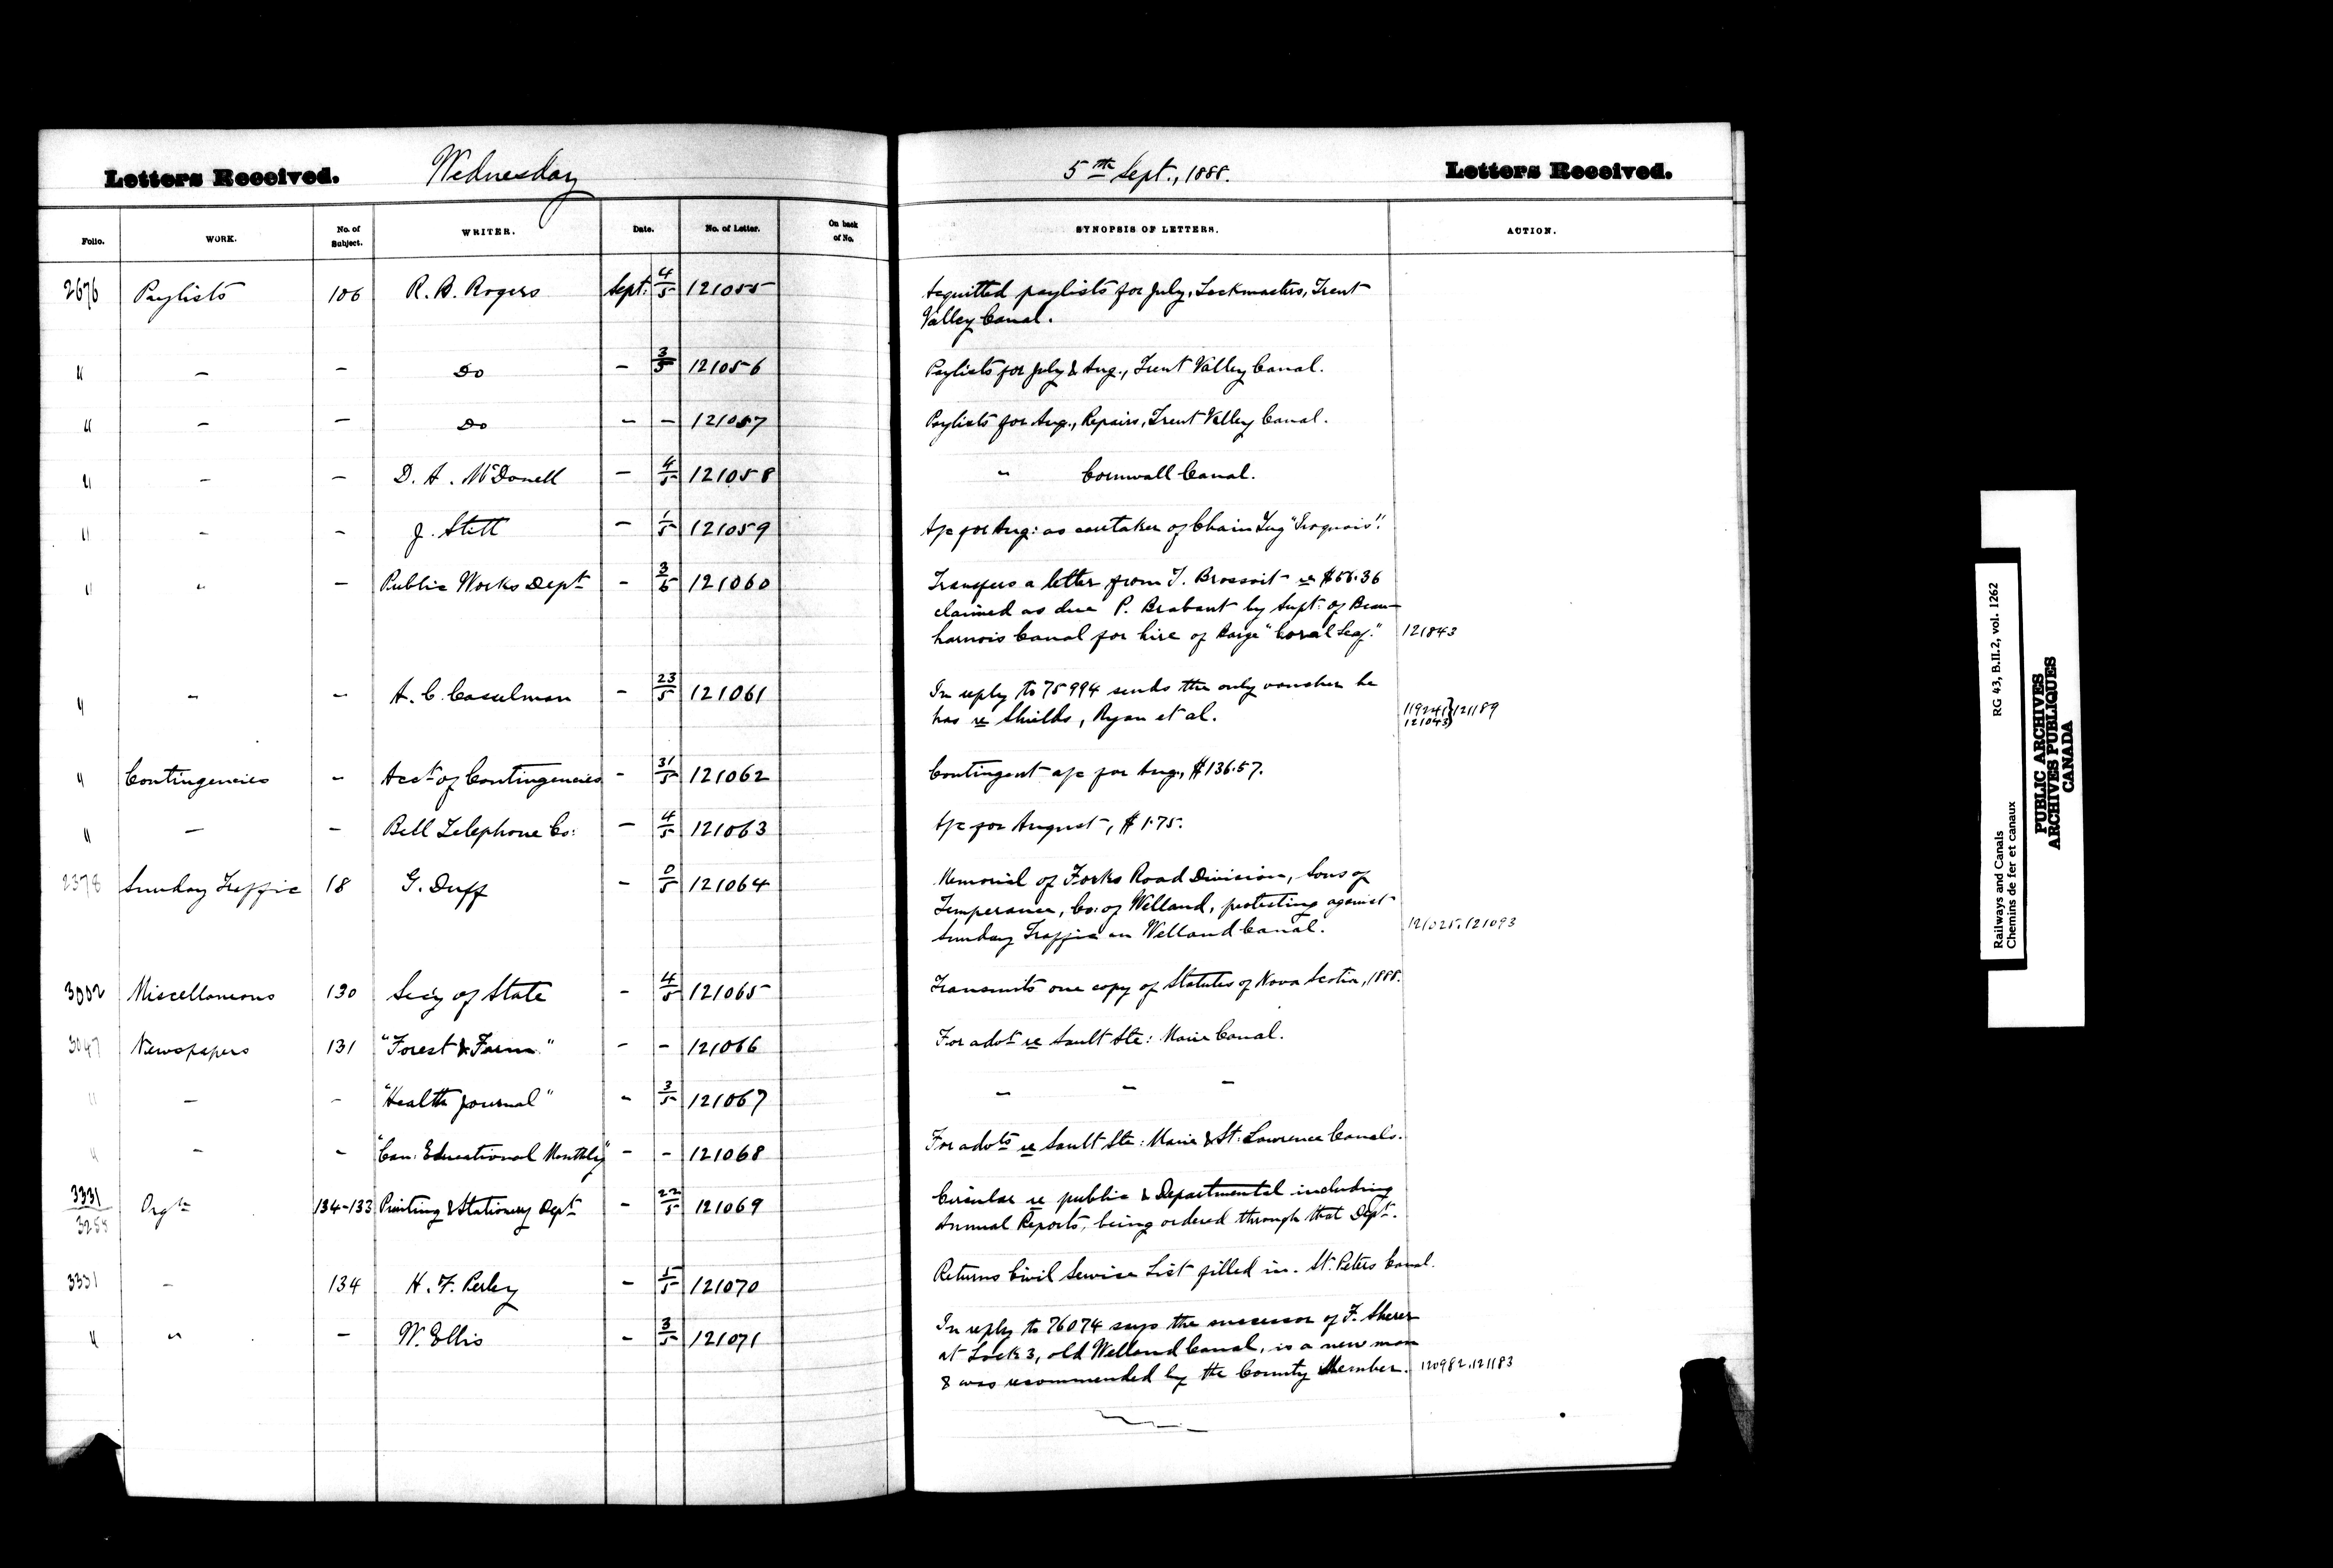 Letters Received. Wednesday 5th Sept., 1888. Letters Received.
Folio. WORK. No. of Subject. WRITER. Date. No. of Letter. On back of No. SYNOPSIS OF LETTERS. ACTION.
2676 Paylists 106 R. B. Rogers Sept: 4/5 121055 Acquitted paylists for July, Lockmasters, Trent
Valley Canal.
" – – Do – 3/5 121056 Paylists for July & Aug., Trent Valley Canal.
" – – Do – – 121057 Paylists for Aug., Repairs, Trent Valley Canal.
" – – D. A. McDonell – 4/5 121058 " Cornwall Canal.
" – – J. Stitt – 1/5 121059 A/c for Aug: as caretaker of Chain Tug "Iroquois".
" " – Public Works Dept – 3/5 121060 Transfers a letter from T. Brossoit re $56.36
claimed as due P. Brabant by Supt: of Beau–
harnois Canal for hire of Barge "Coral Leaf." 121843
" – – A. C. Casselman – 23/5 121061 In reply to 75994 sends the only voucher he
has re Shields, Ryan et al. 119241 } 121189
121043 }
" Contingencies – Acct of Contingencies – 31/5 121062 Contingent a/c for Aug., $136.57.
" – – Bell Telephone Co: – 4/5 121063 A/c for August, $1.75.
2378 Sunday Traffic 18 G. Duff – 0/5 121064 Memorial of Forks Road Division, Sons of
Temperance, Co: of Welland, protesting against
Sunday Traffic on Welland Canal. 121025.121093
3002 Miscellaneous 130 Secy of State – 4/5 121065 Transmits one copy of Statutes of Nova Scotia, 1888.
3047 Newspapers 131 "Forest & Farm" – – 121066 For advt re Sault Ste: Marie Canal.
" – – "Health Journal" – 3/5 121067 – – –
" – – "Can: Educational Monthly" – – 121068 For advts re Sault Ste: Marie & St: Lawrence Canals.
3331/3255 Orgtn 134-133 Printing & Stationery Dept – 22/5 121069 Circular re public & Departmental including
Annual Reports, being ordered through that Dept.
3331 – 134 H. F. Perley – 1/5 121070 Returns Civil Service List filled in. St. Peters Canal.
" " – W. Ellis – 3/5 121071 In reply to 76074 says the successor of F. Sherer
at Lock 3, old Welland Canal, is a new man
& was recommended by the County Member. 120982.121183
Railways and Canals RG 43, B.II.2, vol. 1262
Chemins de fer et canaux
PUBLIC ARCHIVES
ARCHIVES PUBLIQUES
CANADA